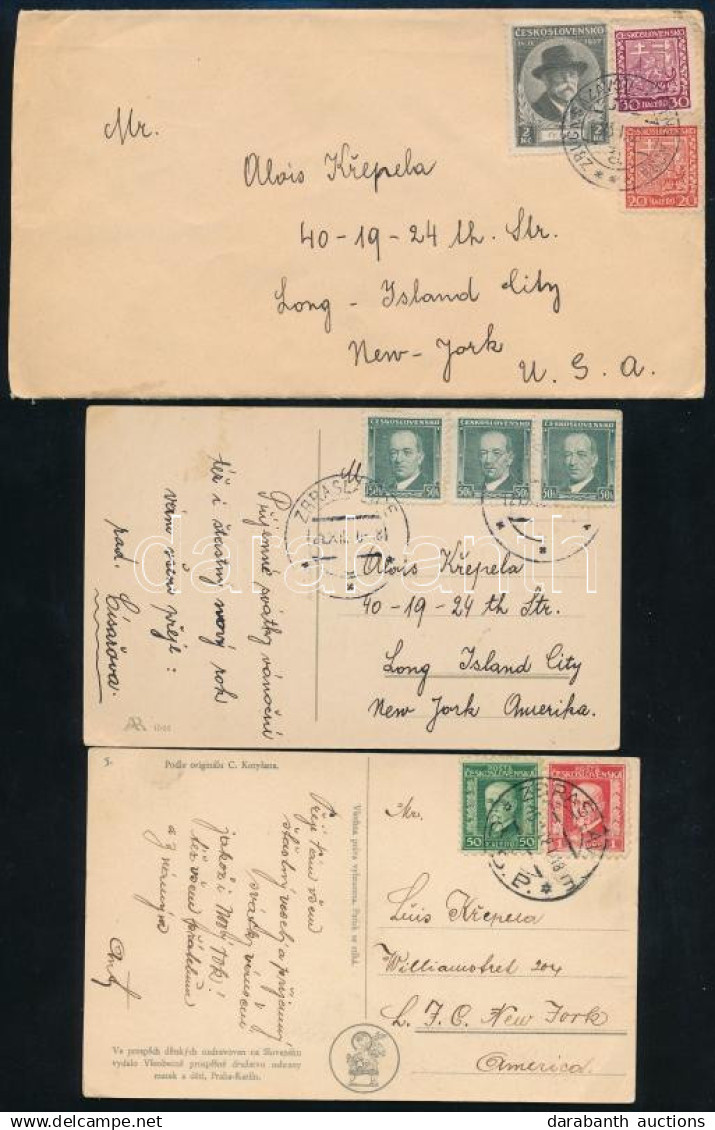 ČESKOSLOVENSKO
2 Kč 2 Kč
ČESKOSLOVENSKO
30 HALÉŘŮ 30
ČESKOSLOVENSKO
20 HALÉŘŮ 20
Mr.
Alois Křepela
40-19-24 th. Str.
Long-Island City
New-York
U. S. A.
ČESKOSLOVENSKO
50h
ČESKOSLOVENSKO
50h
ČESKOSLOVENSKO
50h
Příjemné svátky vánoční
též i šťastný nový rok
vám všem přeje:
Císařova.
Alois Křepela
40-19-24 th Str.
Long Island City
New York Amerika.
5.
Podle originálu C. Kotyšana.
Všechna práva vyhrazena. Patisk se stíhá.
POŠTA
ČESKOSLOVENSKÁ
50 HALÉŘŮ 50
POŠTA
ČESKOSLOVENSKÁ
Přeji Vám všem
šťastný veselý a příjemný
svátky vánoční
jakož i Nový rok!
též všem přátelům
a známým
Mr.
Luis Křepela
204
L. I. C. New York
America.
Ve prospěch dětských ozdravoven na Slovensku
vydalo Všeobecně prospěšné družstvo ochrany
matek a dětí, Praha-Karlín.
darabanth
darabanth auctions
www.darabanth.com